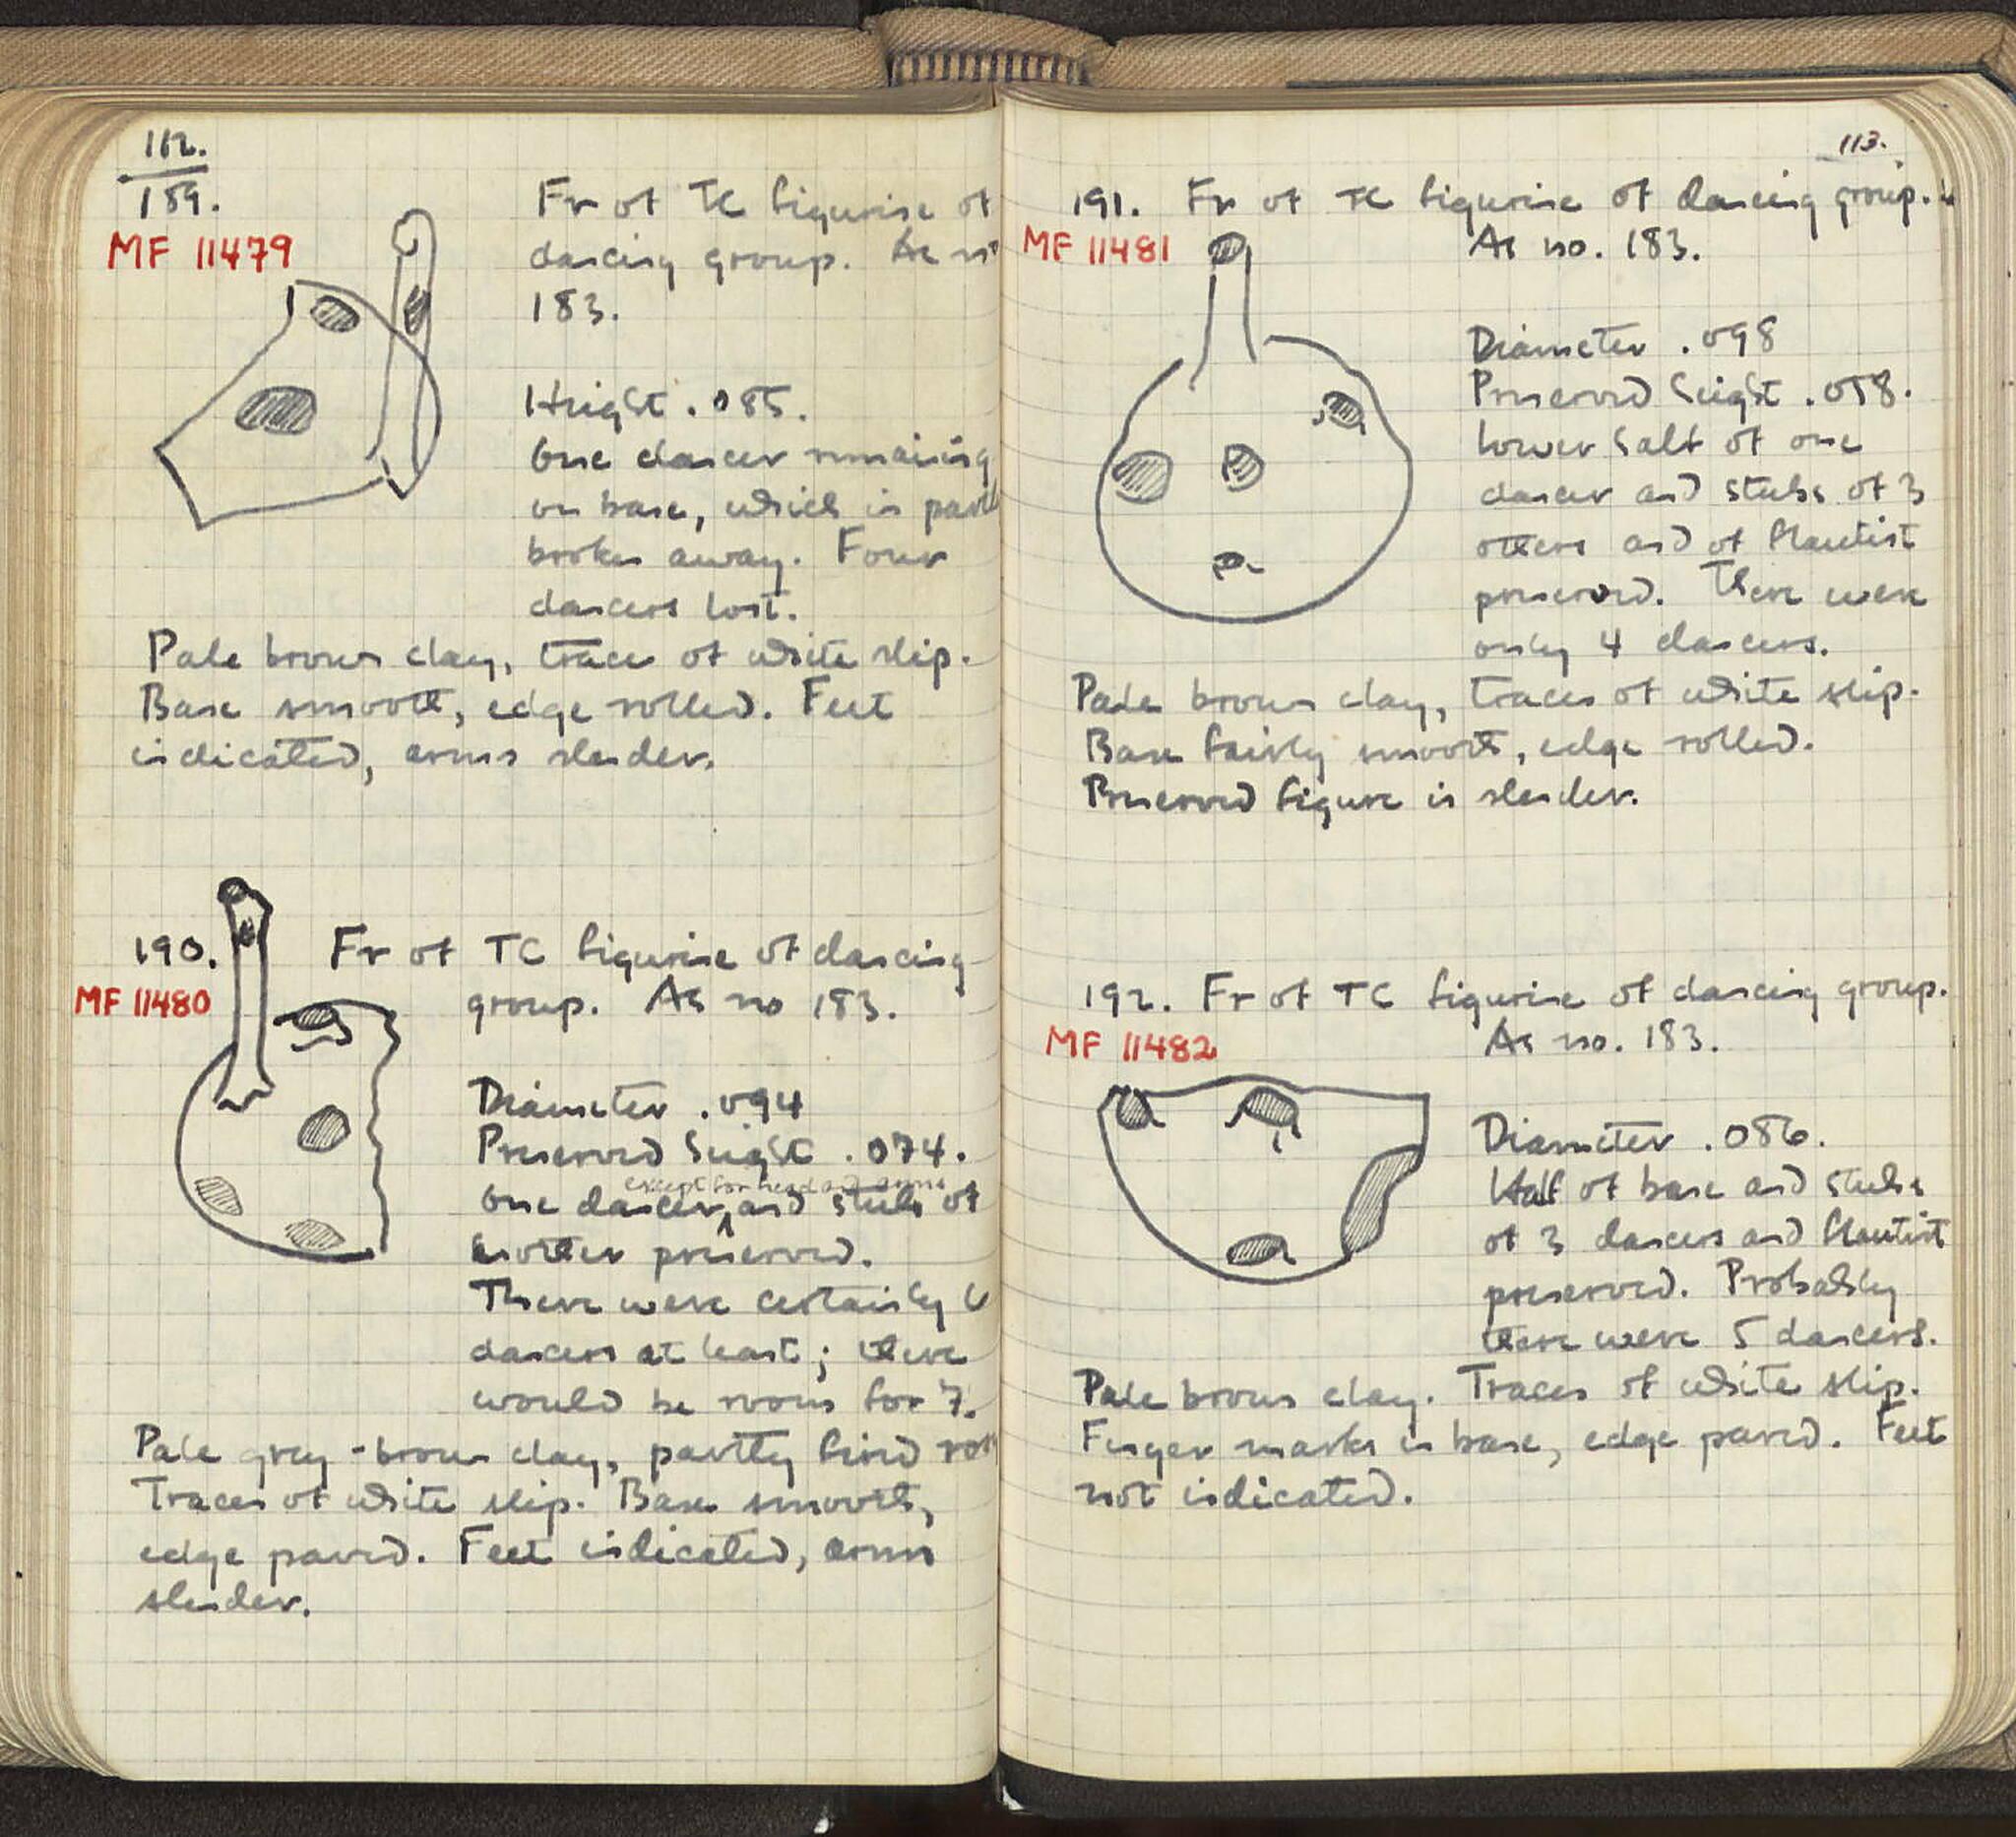 112.
189.
MF 11479
Fr of TC figurine of
dancing group. As no
183.
Height .085.
One dancer remaining
on base, which is partly
broken away. Four
dancers lost.
Pale brown clay, traces of white slip.
Base smooth, edge rolled. Feet
indicated, arms slender.
190. Fr of TC figurine of dancing
MF 11480 group. As no 183.
Diameter .094
Preserved height .074.
except for head and arms
One dancer, and stubs of
another preserved.
There were certainly 6
dancers at least; there
would be room for 7.
Pale grey-brown clay, partly fired
Traces of white slip. Base smooth,
edge pared. Feet indicated, arms
slender.
113.
191. Fr of TC figurine of dancing group.
MF 11481 As no. 183.
Diameter .098
Preserved height .058.
Lower half of one
dancer and stubs of 3
others and of flautist
preserved. There were
only 4 dancers.
Pale brown clay, traces of white slip.
Base fairly smooth, edge rolled.
Preserved figure is slender.
192. Fr of TC figurine of dancing group.
MF 11482 As no. 183.
Diameter .086.
Half of base and stubs
of 3 dancers and flautist
preserved. Probably
there were 5 dancers.
Pale brown clay. Traces of white slip.
Finger marks in base, edge pared. Feet
not indicated.